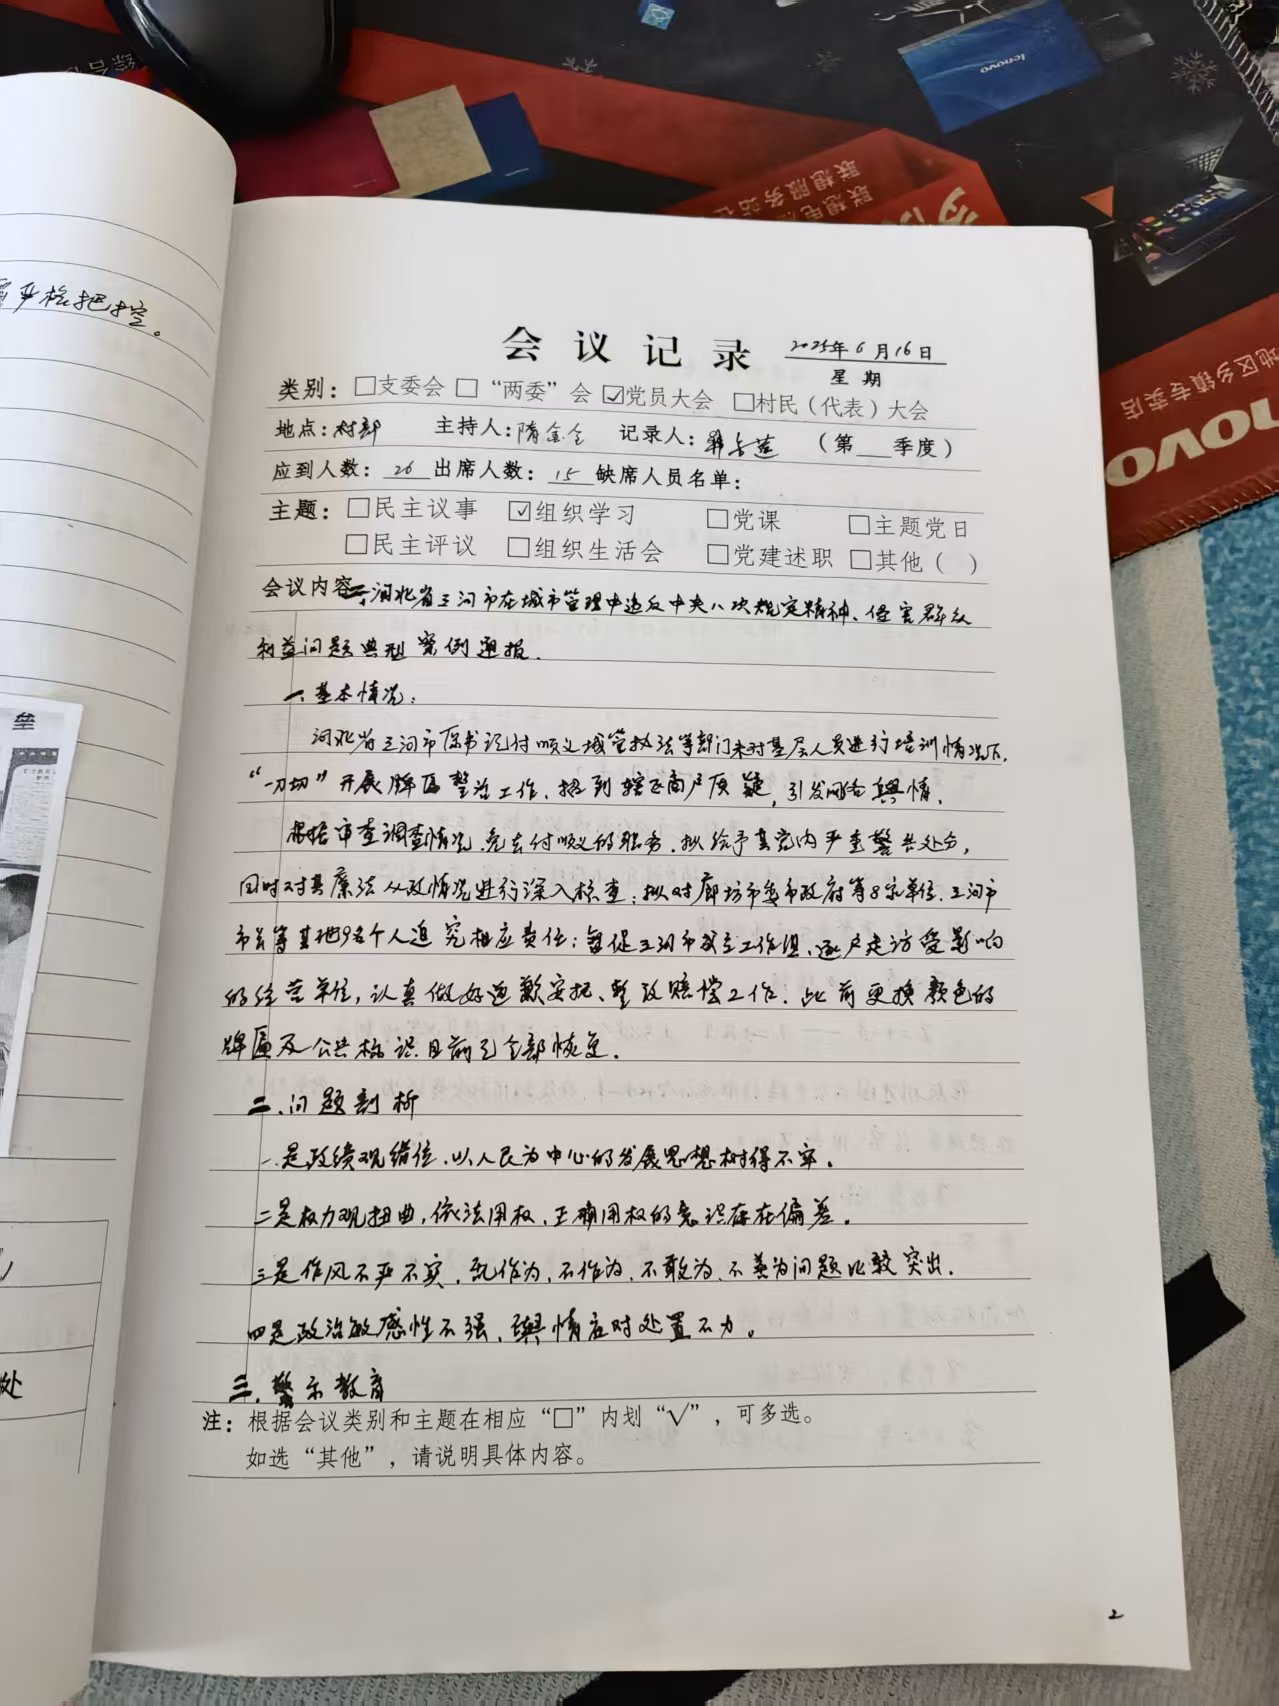 综合
lenovo
联想服务站
联想电
地区乡镇专卖店
novo
严格把控。
垒
处
会议记录 2025年6月16日
星期
类别：□支委会 □“两委”会 ☑党员大会 □村民（代表）大会
地点：村部 主持人：隋金仝 记录人： （第 季度）
应到人数：26 出席人数：15 缺席人员名单：
主题：□民主议事 ☑组织学习 □党课 □主题党日
□民主评议 □组织生活会 □党建述职 □其他（ ）
会议内容 河北省三河市在城市管理中违反中央八次规定精神、侵害群众
利益问题典型案例通报.
一、基本情况：
河北省三河市原书记付顺义城管执法等部门未对基层人员进行培训情况下,
“一刀切”开展牌匾整治工作,招到辖区商户质疑,引发网络舆情.
根据审查调查情况,免去付顺义的职务,拟给予其党内严重警告处分,
同时对其廉法从政情况进行深入核查;拟对廊坊市委市政府等8家单位.三河市
市长等其他9名个人追究相应责任;督促三河市成立工作组,逐户走访受影响
的经营单位,认真做好道歉安抚、整改赔偿工作.此前更换颜色的
牌匾及公共标识目前已全部恢复.
二.问题剖析
一是政绩观错位.以人民为中心的发展思想树得不牢.
二是权力观扭曲,依法用权,正确用权的意识存在偏差.
三是作风不严不实,乱作为,不作为,不敢为,不善为问题比较突出.
四是政治敏感性不强,舆情应对处置不力。
三.警示教育
注：根据会议类别和主题在相应“□”内划“√”，可多选。
如选“其他”，请说明具体内容。
2